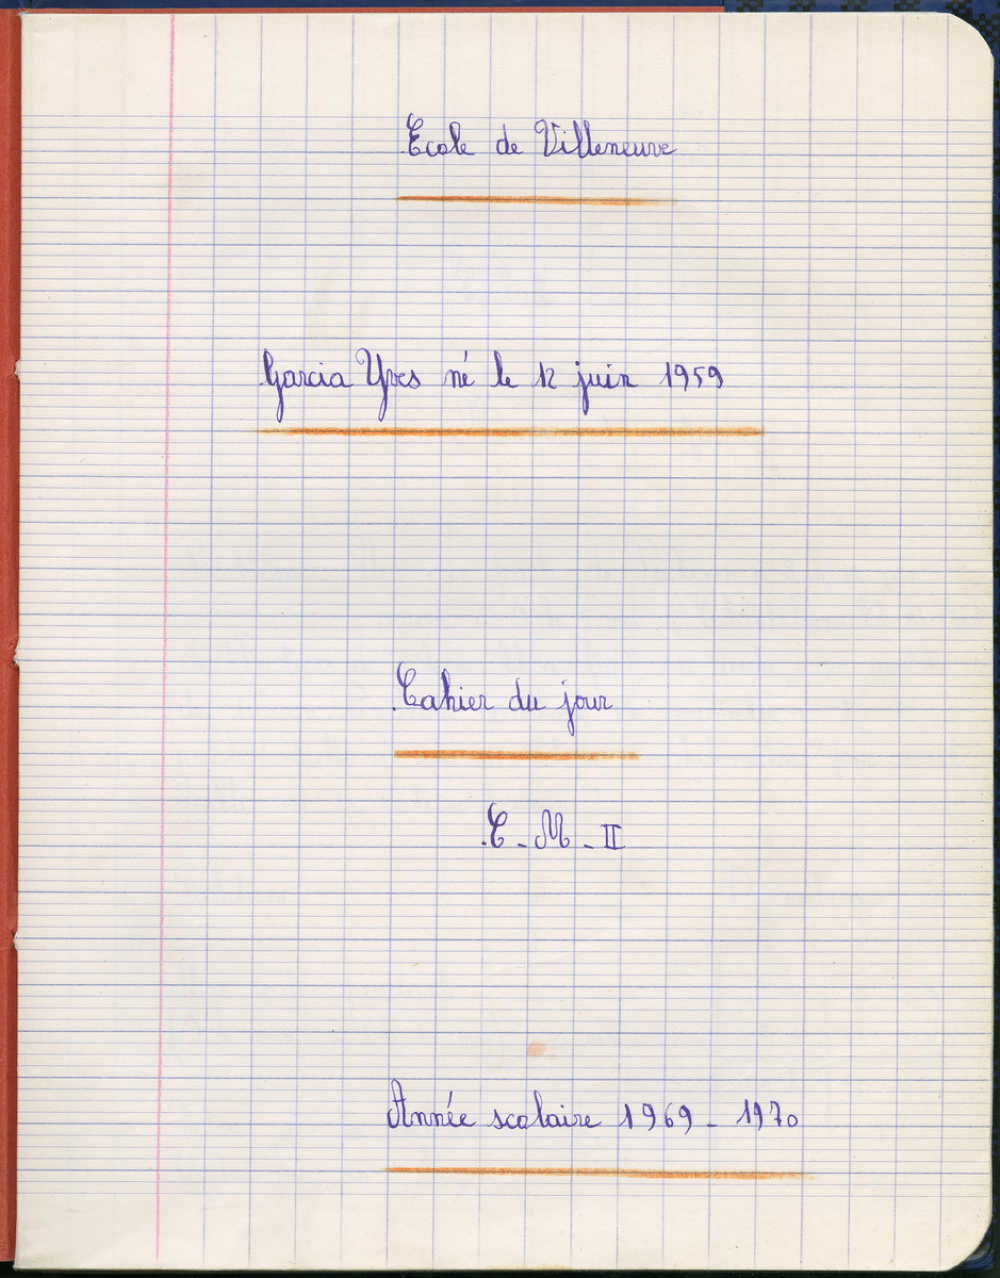 Ecole de Villeneuve
Garcia Yves né le 12 juin 1959
Cahier du jour
C - M - II
Année scolaire 1969 - 1970